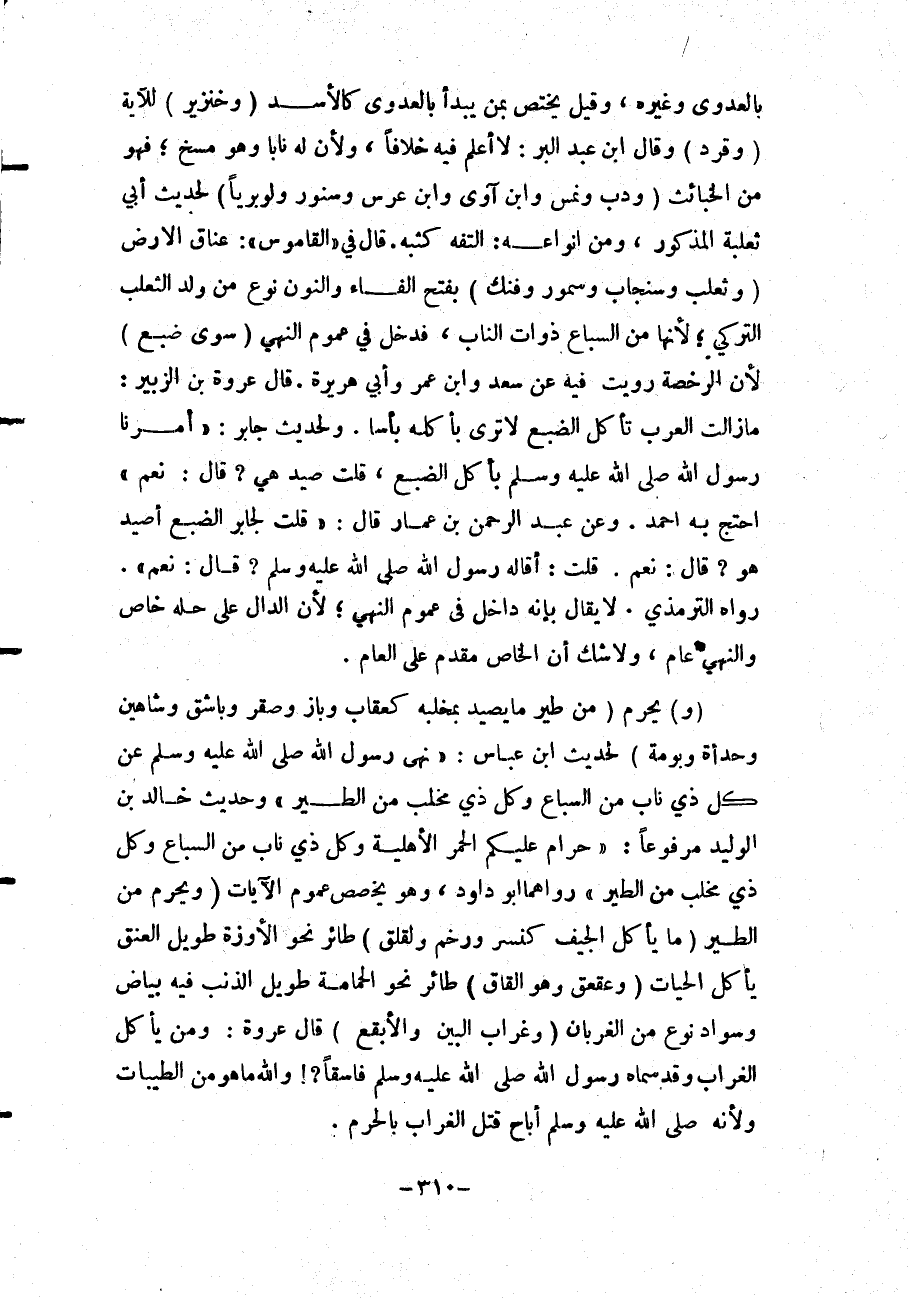 بالعدوى وغيره ، وقيل يختص بمن يبدأ بالعدوى كالأسد ( وخنزير ) للآية
( وقرد ) وقال ابن عبد البر : لا أعلم فيه خلافاً ، ولأن له نابا وهو مسخ ؛ فهو
من الخبائث ( ودب ونمس وابن آوى وابن عرس وسنور ولوبرياً ) لحديث أبي
ثعلبة المذكور ، ومن انواعه : التفه كثبه . قال في «القاموس» : عناق الارض
( وثعلب وسنجاب وسمور وفنك ) بفتح الفاء والنون نوع من ولد الثعلب
التركي ؛ لأنها من السباع ذوات الناب ، فدخل في عموم النهي ( سوى ضبع )
لأن الرخصة رويت فيه عن سعد وابن عمر وأبي هريرة . قال عروة بن الزبير :
مازالت العرب تأكل الضبع لاترى بأكله بأسا . ولحديث جابر : « أمرنا
رسول الله صلى الله عليه وسلم بأكل الضبع ، قلت صيد هي ? قال : نعم »
احتج به احمد . وعن عبد الرحمن بن عمار قال : « قلت لجابر الضبع أصيد
هو ? قال : نعم . قلت : أقاله رسول الله صلى الله عليه وسلم ? قال : نعم » .
رواه الترمذي . لايقال بإنه داخل في عموم النهي ؛ لأن الدال على حله خاص
والنهي عام ، ولاشك أن الخاص مقدم على العام .
(و) يحرم ( من طير مايصيد بمخلبه كعقاب وباز وصقر وباشق وشاهين
وحدأة وبومة ) لحديث ابن عباس : « نهى رسول الله صلى الله عليه وسلم عن
كل ذي ناب من السباع وكل ذي مخلب من الطير » وحديث خالد بن
الوليد مرفوعاً : « حرام عليكم الحمر الأهلية وكل ذي ناب من السباع وكل
ذي مخلب من الطير » رواهما ابو داود ، وهو يخصص عموم الآيات ( ويحرم من
الطير ( ما يأكل الجيف كنسر ورخم ولقلق ) طائر نحو الأوزة طويل العنق
يأكل الحيات ( وعقعق وهو القاق ) طائر نحو الحمامة طويل الذنب فيه بياض
وسواد نوع من الغربان ( وغراب البين والأبقع ) قال عروة : ومن يأكل
الغراب وقد سماه رسول الله صلى الله عليه وسلم فاسقاً ?! والله ماهو من الطيبات
ولأنه صلى الله عليه وسلم أباح قتل الغراب بالحرم .
-٣١٠-